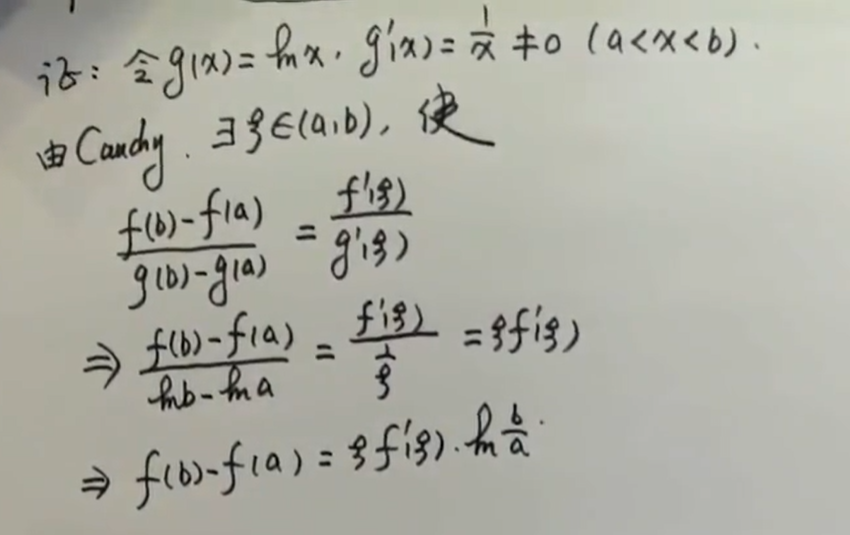 证: 令g(x)=ln x. g'(x)=1/x ≠0 (a<x<b).
由Cauchy. ∃ξ∈(a,b), 使
(f(b)-f(a))/(g(b)-g(a)) = f'(ξ)/g'(ξ)
⇒ (f(b)-f(a))/(ln b-ln a) = f'(ξ)/(1/ξ) = ξf'(ξ)
⇒ f(b)-f(a) = ξf'(ξ)·ln b/a.